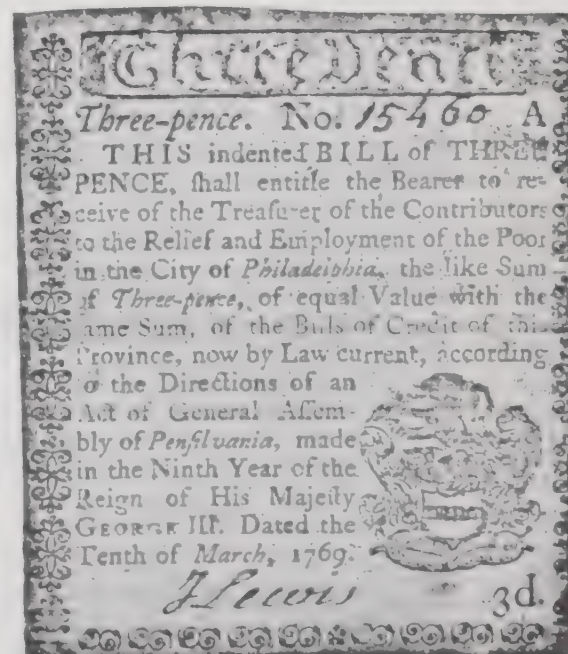 Three Pence
Three-pence. No. 15460 A
THIS indented BILL of THREE
PENCE, ſhall entitle the Bearer to re-
ceive of the Treaſurer of the Contributors
to the Relief and Employment of the Poor
in the City of Philadelphia, the like Sum
of Three-pence, of equal Value with the
ſame Sum, of the Bills of Credit of this
Province, now by Law current, according
to the Directions of an
Act of General Aſſem-
bly of Penſilvania, made
in the Ninth Year of the
Reign of His Majeſty
GEORGE III. Dated the
Tenth of March, 1769.
J Lewis
3d.